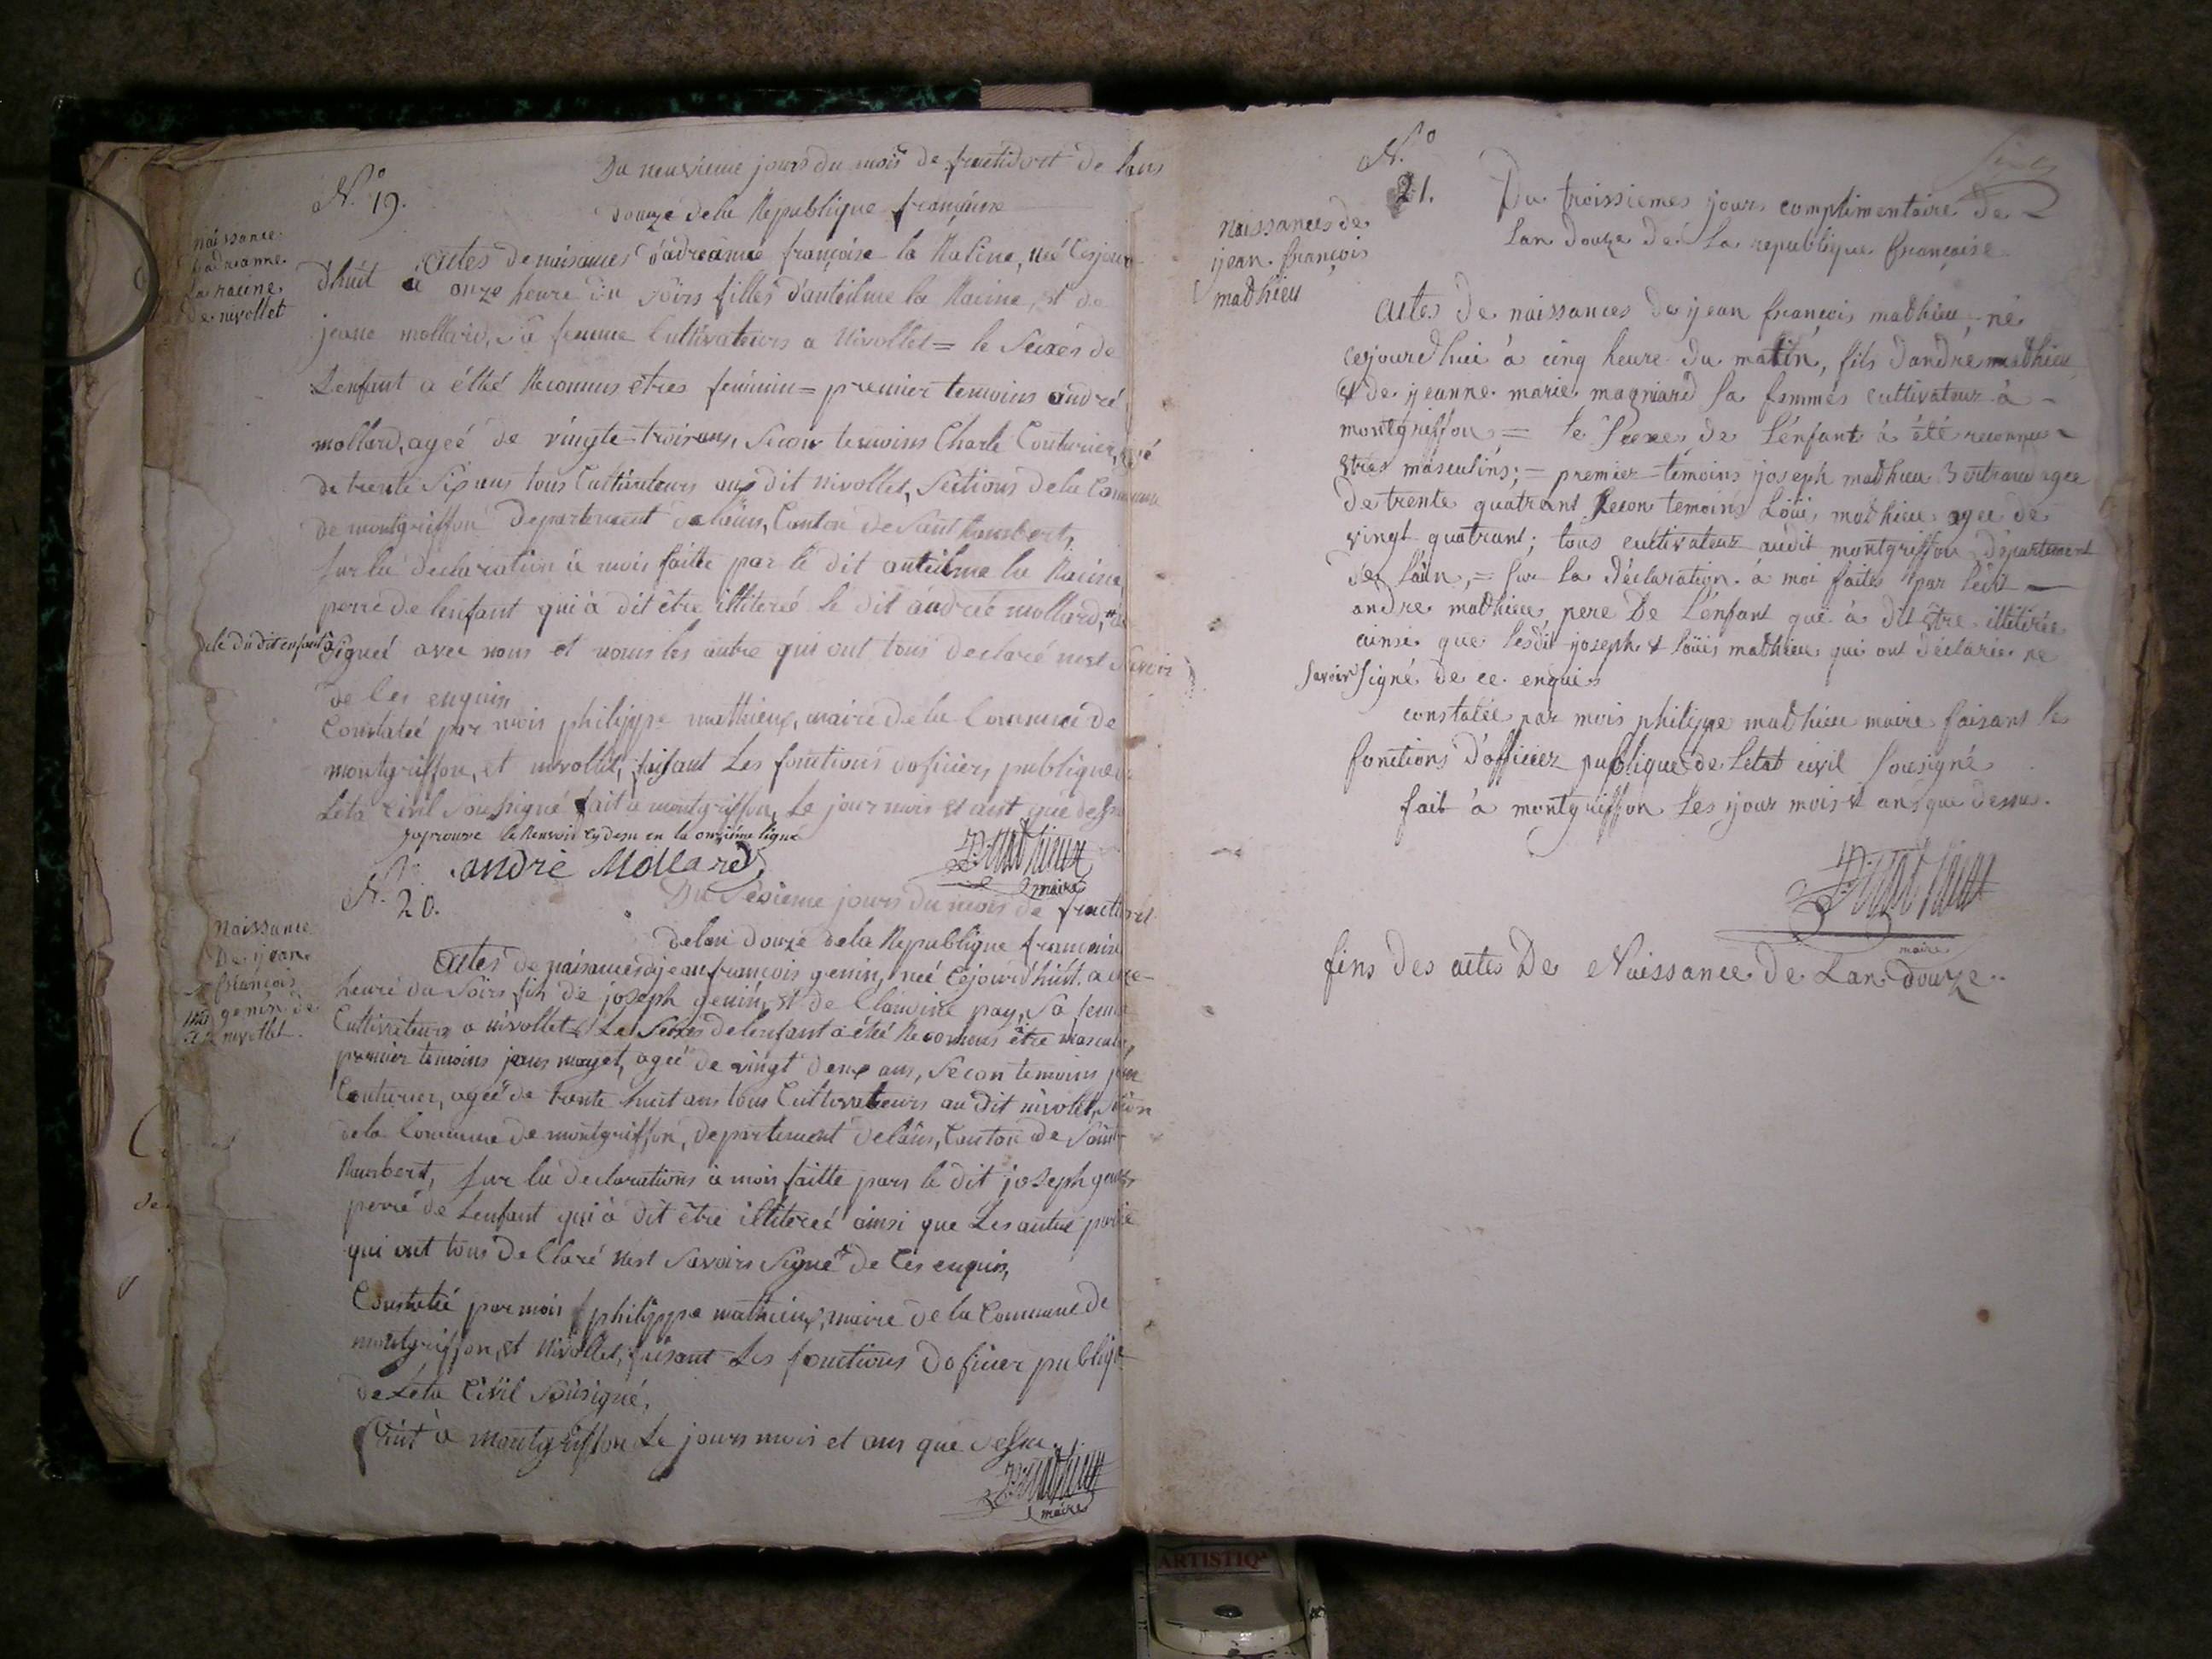 N.º 19.
Du neuvieme jours du mois de fructidort de lans
douze de la Republique françaisse
naissance
d'adreanne
la racine
de nivollet
Actes de naisances d'adreanne françoise la Racine, neé Cejour
dhuit a onze heure du soirs filles d'anteilme la Racine, et de
jeane mollard, sa femme Cultivateurs a Nivollet = le Sexes de
Lenfant a étteé Reconnus etres feminin = premier temoins andré
mollard, ageé de vingte-trois ans, Secon temoins Charle Couturier, agé
de trente Six ans tous Cultivateurs aux dit nivollet, Sections de la Commune
de montgriffon departement de lains, Canton de Saint Rambert,
Sur la declaration a mois faitte par le dit anteilme la Racine
perre de lenfant qui à dit être illitereé le dit andrée mollard, a
dele du dit enfant
Signeé avec nous et nous les autre qui ont tous declaré nest Savoir
de Ces enquis
Constateé par mois philippe mathieux, maire de la Commune de
montgriffon, et nivollet, faisant Les fonctions doficiers publique
Leta Civil Soussigné fait a montgriffon, Le jour mois et ant que dessu
japrouve le Renvois cy desu en la onzième ligne
andrè Mollard
P. Mathieux
maire
N. 20.
Du Sesieme jours du mois de fructidort
delan douze dela Republique françaisse
Naissance
De jean
francois
genin de
nivollet
Actes de naisances de jean françois genin, neé Cejourdhuit a
heure du Soirs fils de joseph genin, et de Claudine pay, Sa femme
Cultivateurs a nivollet Le Sexes de lenfant a étté Reconnus être masculin
premier temoins jean mayet, ageé de vingt deux ans, Secon temoins
Couturier, ageé de trente huit ans tous Cultivateurs au dit nivollet, Section
de la Commune de montgriffon, departement de lains, Canton de Saint
Rambert, Sur la declarations a mois faitte pars le dit joseph genin
perre de Lenfant qui à dit être illitereé ainsi que Les autre partie
qui ont tous de Claré nest Savoirs Signé de Ces enquis,
Constateé par mois philippe mathieux, maire de la Commune de
montgriffon, et Nivollet, faisant Les fonctions doficier publique
de Leta Civil Sousigné,
fait a montgriffon Le jours mois et ans que dessu.
P. Mathieux
maire
N.º
21.
Du troissiemes jours complimentaire de
Lan douze de la republique françoise
naissances de
jean françois
mathieu
Actes de naissances de jean françois mathieu, né
cejourdhui à cinq heure du matin, fils dandré mathieu
et de jeanne marie magniard sa femmes cultivateur à
montgriffon = le Sexes de lénfant à été reconnu
etres masculins; = premier témoins joseph mathieu Bertrand agee
de trente quatrant Secon temoins Loüis mathieu agee de
vingt quatrant; tous cultivateur audit montgriffon département
de Laïn, = sur la déclaration à moi faites par ledit
andre mathieu, pere De Lénfant qui à dit être illitirée
ainsi que lesdit joseph & loüis mathieu qui ont déclarée ne
Savoir signé de ce enquis
constatée par mois philippe mathieu maire faisant les
fonctions d'officier publique de Letat civil Sousigné
fait à montgriffon Les jour mois & ans que dessu.
P. Mathieux
maire
fins des actes De Naissance de Lan douze.
ARTISTIQ